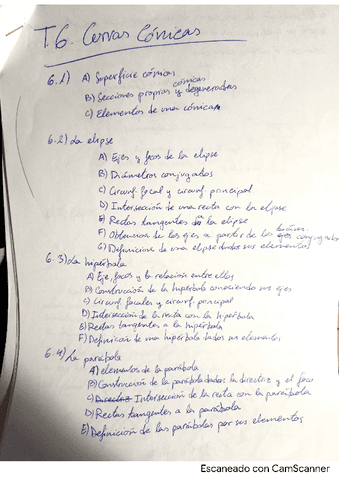 T.6. Curvas Cónicas
6.1) A) Superficie cónicas
cónicas
B) Secciones propias y degeneradas
C) Elementos de una cónica
6.2) La elipse
A) Ejes y focos de la elipse
B) Diámetros conjugados
C) Circunf. focal y circunf. principal
D) Intersección de una recta con la elipse
E) Rectas tangentes a la elipse
F) Obtención de los ejes a partir de los ejes conjugados
G) Definición de una elipse dados sus elementos
6.3) La hipérbola
A) Eje, focos y la relación entre ellos
B) Construcción de la hipérbola conociendo sus ejes
C) Circunf. focales y circunf. principal
D) Intersección de la recta con la hipérbola
E) Rectas tangentes a la hipérbola
F) Definición de una hipérbola dados sus elementos
6.4) La parábola
A) elementos de la parábola
B) Construcción de la parábola dados la directriz y el foco
C) Intersección de la recta con la parábola
D) Rectas tangentes a la parábola
E) Definición de las parábolas por sus elementos
Escaneado con CamScanner